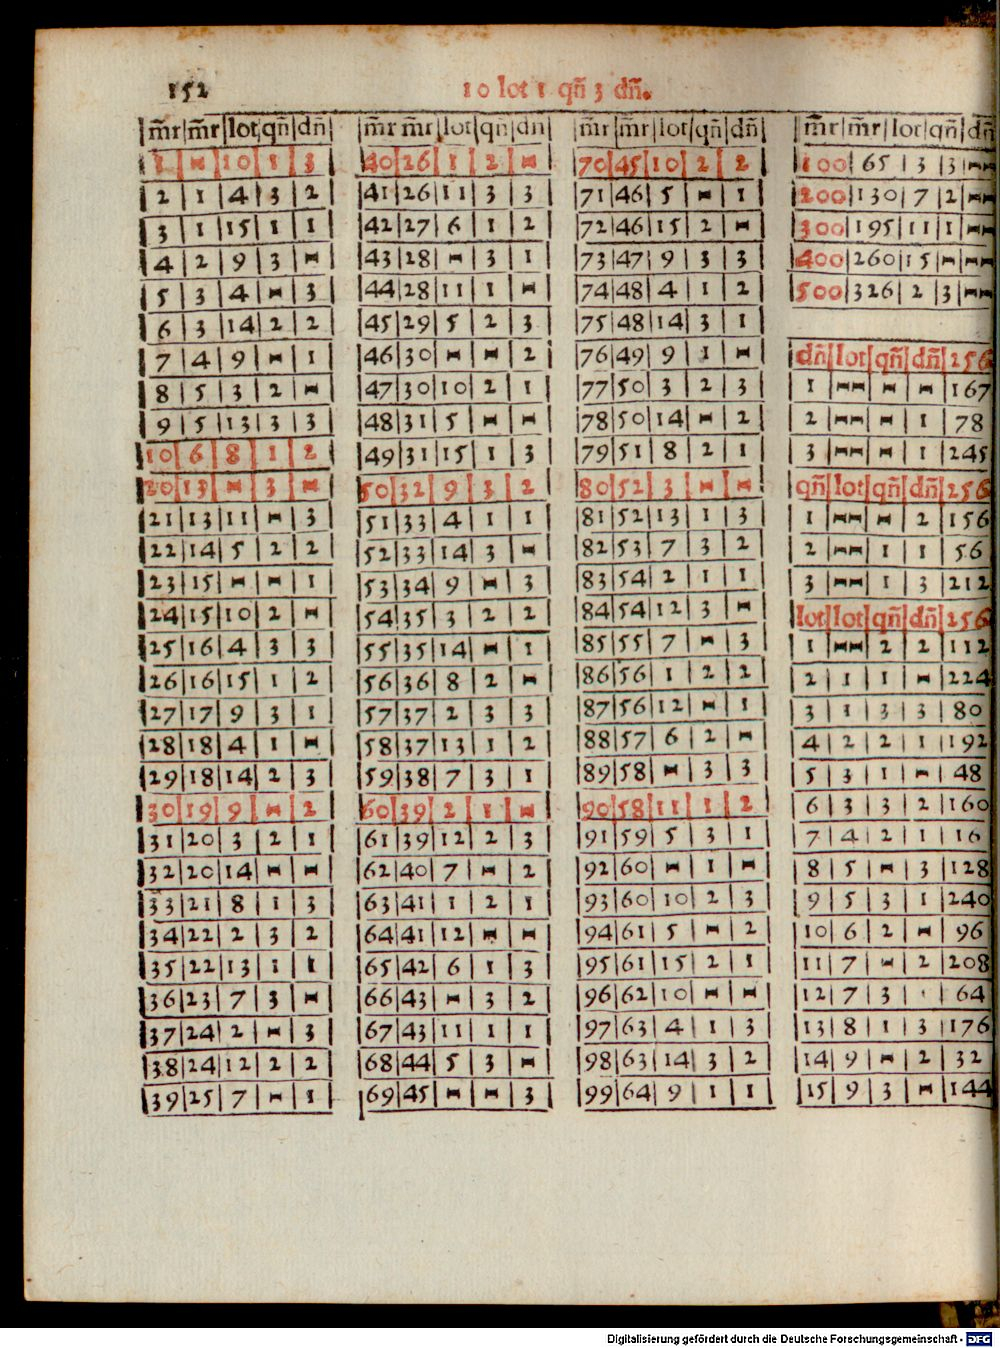 152
10 lot 1 qñ 3 dñ.
m̃r m̃r lot qñ dñ
1 - 10 1 3
2 1 4 3 2
3 1 15 1 1
4 2 9 3 -
5 3 4 - 3
6 3 14 2 2
7 4 9 - 1
8 5 3 2 -
9 5 13 3 3
10 6 8 1 2
20 13 - 3 -
21 13 11 - 3
22 14 5 2 2
23 15 - - 1
24 15 10 2 -
25 16 4 3 3
26 16 15 1 2
27 17 9 3 1
28 18 4 1 -
29 18 14 2 3
30 19 9 - 2
31 20 3 2 1
32 20 14 - -
33 21 8 1 3
34 22 2 3 2
35 22 13 1 1
36 23 7 3 -
37 24 2 - 3
38 24 12 2 2
39 25 7 - 1
m̃r m̃r lot qñ dñ
40 26 1 2 -
41 26 11 3 3
42 27 6 1 2
43 28 - 3 1
44 28 11 1 -
45 29 5 2 3
46 30 - - 2
47 30 10 2 1
48 31 5 - -
49 31 15 1 3
50 32 9 3 2
51 33 4 1 1
52 33 14 3 -
53 34 9 - 3
54 35 3 2 2
55 35 14 - 1
56 36 8 2 -
57 37 2 3 3
58 37 13 1 2
59 38 7 3 1
60 39 2 1 -
61 39 12 2 3
62 40 7 - 2
63 41 1 2 1
64 41 12 - -
65 42 6 1 3
66 43 - 3 2
67 43 11 1 1
68 44 5 3 -
69 45 - - 3
m̃r m̃r lot qñ dñ
70 45 10 2 2
71 46 5 - 1
72 46 15 2 -
73 47 9 3 3
74 48 4 1 2
75 48 14 3 1
76 49 9 1 -
77 50 3 2 3
78 50 14 - 2
79 51 8 2 1
80 52 3 - -
81 52 13 1 3
82 53 7 3 2
83 54 2 1 1
84 54 12 3 -
85 55 7 - 3
86 56 1 2 2
87 56 12 - 1
88 57 6 2 -
89 58 - 3 3
90 58 11 1 2
91 59 5 3 1
92 60 - 1 -
93 60 10 2 3
94 61 5 - 2
95 61 15 2 1
96 62 10 - -
97 63 4 1 3
98 63 14 3 2
99 64 9 1 1
m̃r m̃r lot qñ dñ
100 65 3 3 --
200 130 7 2 --
300 195 11 1 --
400 260 15 - --
500 326 2 3 --
dñ lot qñ dñ 256
1 -- - - 167
2 -- - 1 78
3 -- - 1 245
qñ lot qñ dñ 256
1 -- - 2 156
2 -- 1 1 56
3 -- 1 3 212
lot lot qñ dñ 256
1 -- 2 2 112
2 1 1 - 224
3 1 3 3 80
4 2 2 1 192
5 3 1 - 48
6 3 3 2 160
7 4 2 1 16
8 5 - 3 128
9 5 3 1 240
10 6 2 - 96
11 7 - 2 208
12 7 3 1 64
13 8 1 3 176
14 9 - 2 32
15 9 3 - 144
Digitalisierung gefördert durch die Deutsche Forschungsgemeinschaft - DFG